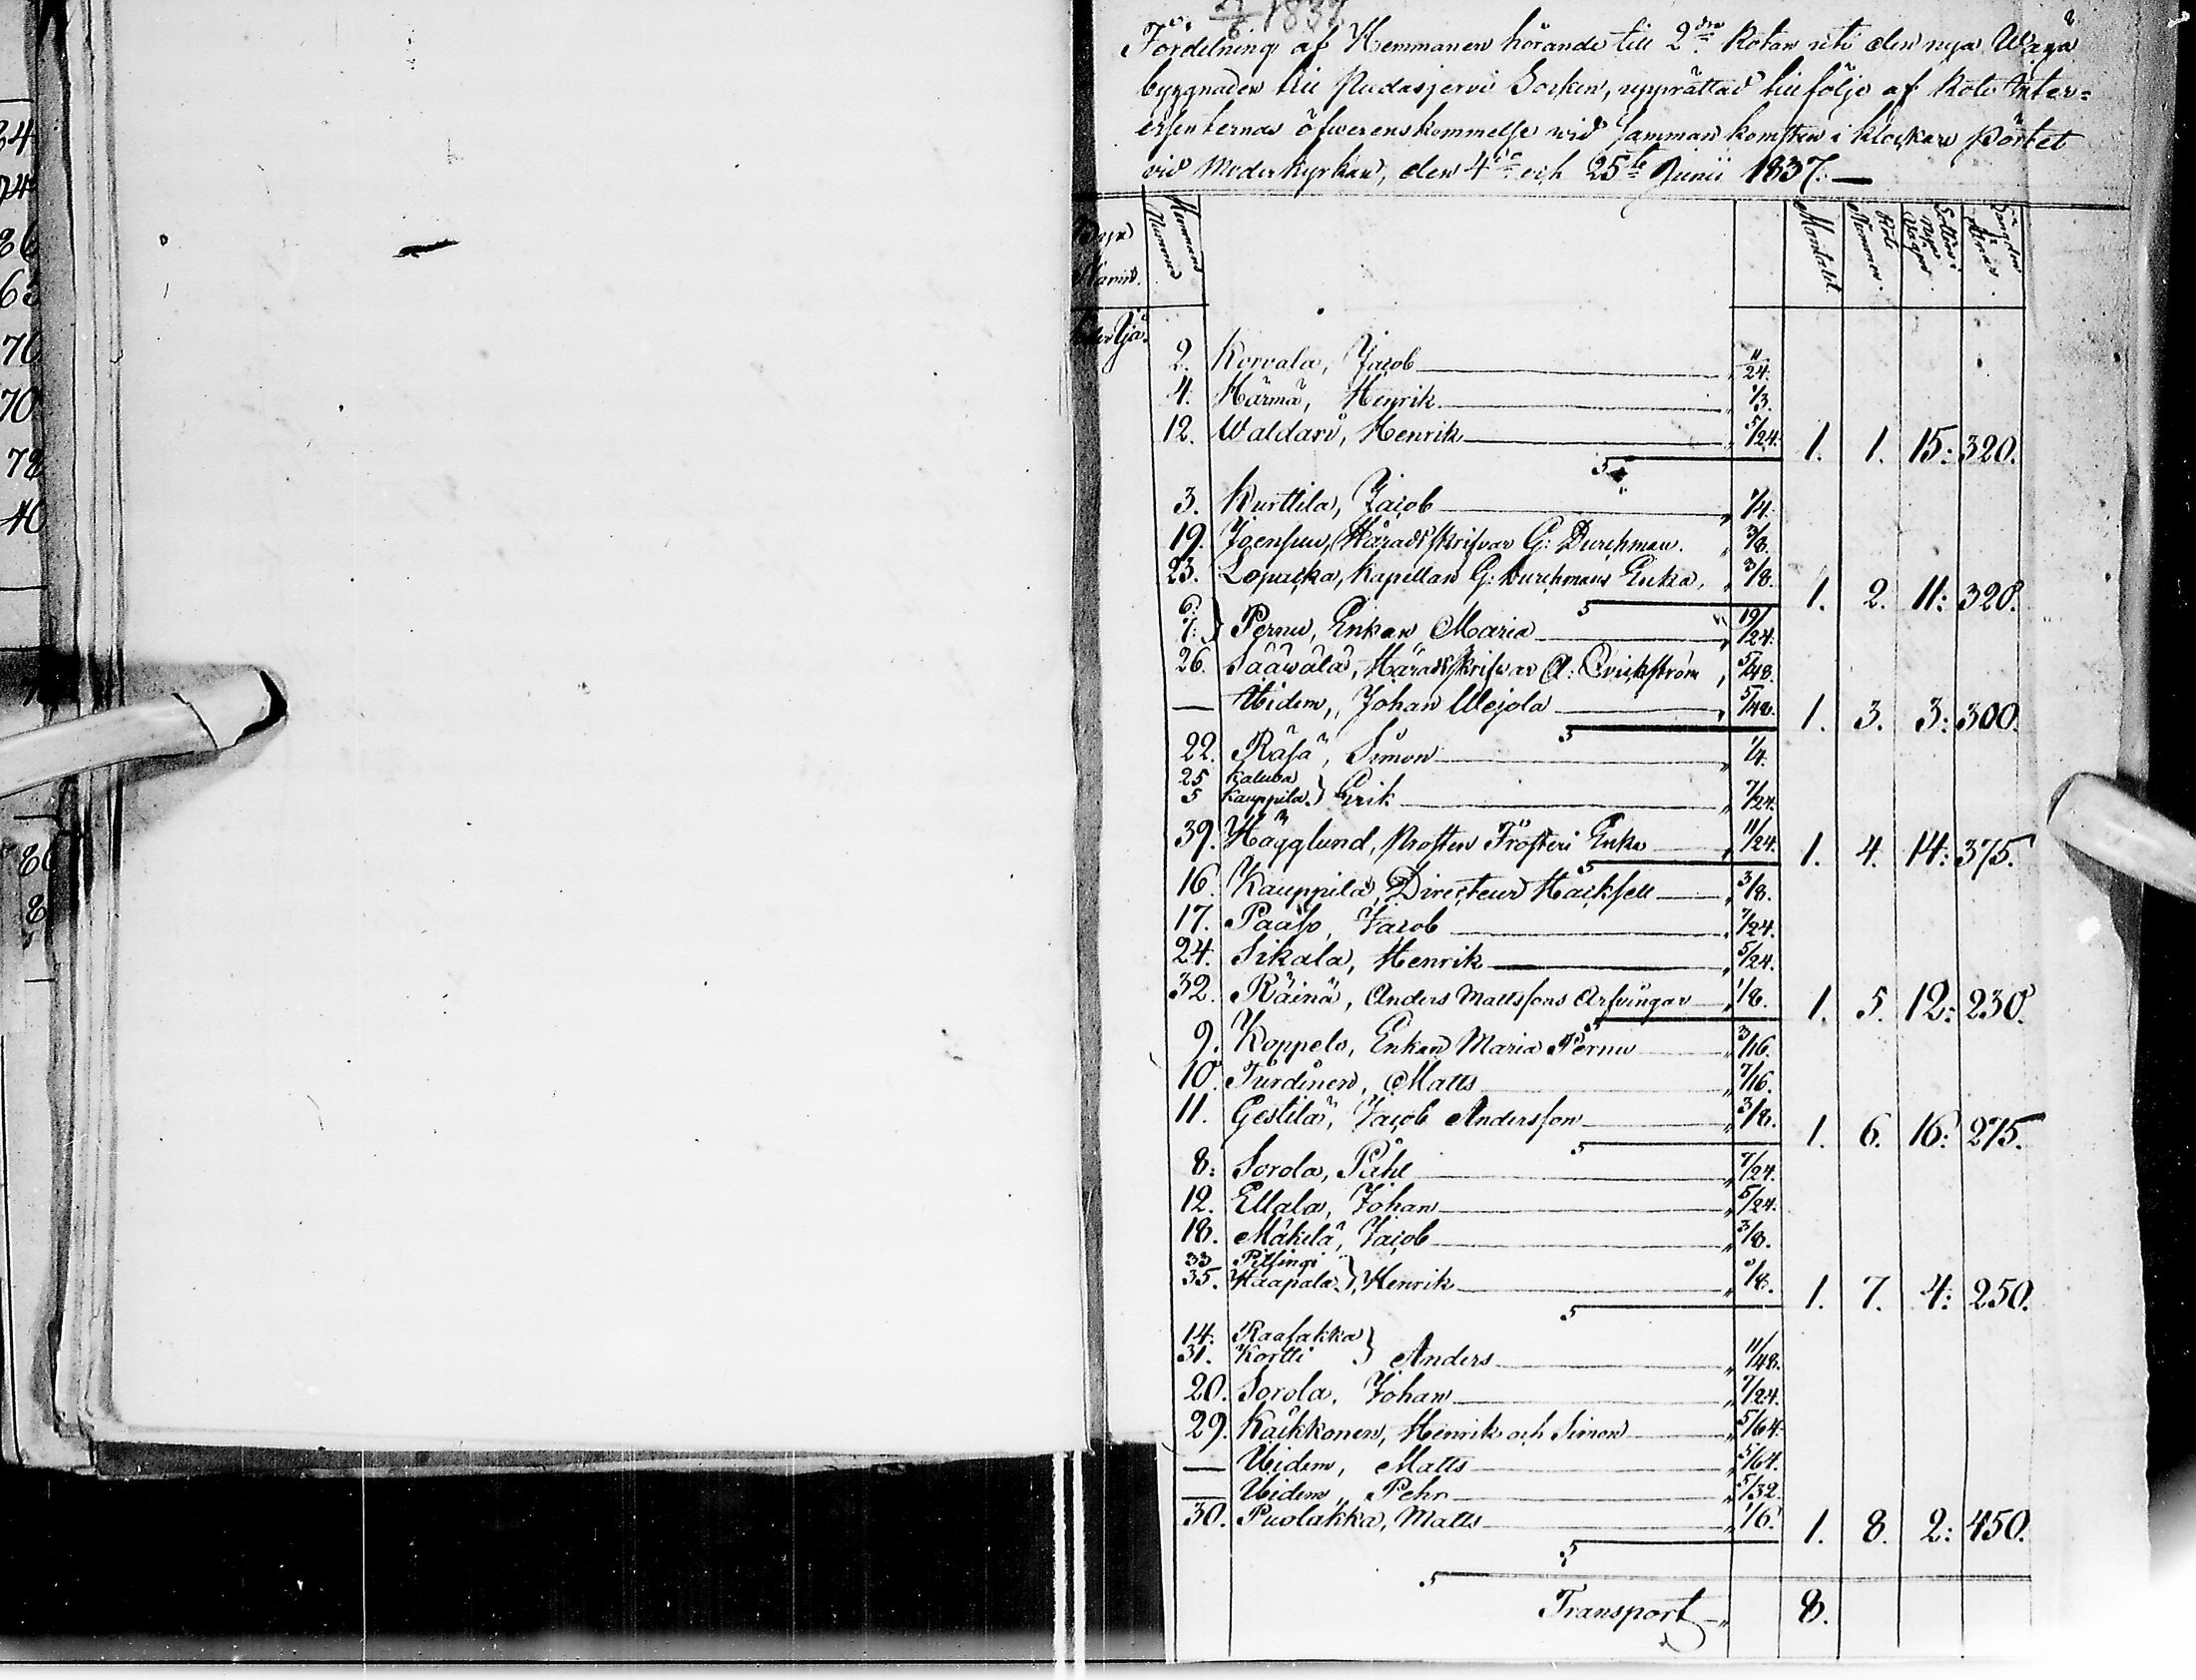 1837
Fördelning af Hemmanen hörande till 2dra Rotan uti den nya Wäga
byggnaden till Pudasjervi Socken, upprättad till följe af Rote Inter=
essenternas öfwerenskommelse wid Sammankomsten i Klockare Pörtet
vid Moderkyrkan, den 4de och 25te Junii 1837. —
Byns Namn. Hemmans Nummer Mantalet. Rote Nummer.
2. Korvala, Jacob 11/24.
4. Härmä, Henrik 1/3.
12. Waldari, Henrik 5/24. 1. 1. 15: 320.
3. Kurttila, Jacob 1/4.
19. Joensuu, Häradsskrifvar G: Durchman. 3/8.
23. Lopakka, Kapellan G: Durchmans Enka, 3/8. 1. 2. 11: 320.
6: 7: } Pernu, Enkan Maria 19/24.
26. Sääwälä, Häradsskrifvar A: Qvickström 5/48.
— Ibidem, Johan Wejola 5/48. 1. 3. 3: 300.
22. Räsä, Simon 1/4.
25 Kaluva
5 Kauppila } Erik 7/24.
39. Hägglund, Prosten Frosteri Enka 11/24. 1. 4. 14: 375.
16. Kauppila, Directeur Hacksell 3/8.
17. Paaso, Jacob 7/24.
24. Sikala, Henrik 5/24.
32. Räinä, Anders Mattssons Arfvingar 1/8. 1. 5. 12: 230.
9. Koppelo, Enkan Maria Pernu 3/16.
10. Turdinen, Matts 7/16.
11. Gestilä, Jacob Andersson 3/8. 1. 6. 16: 275.
8: Sorola, Påhl 7/24.
12. Ellala, Johan 5/24.
18. Mäkelä, Jacob 3/8.
33 Pitsinqi
35. Haapala }, Henrik 1/8. 1. 7. 4: 250.
14: Raasakka
31. Kortti } Anders 11/48.
20. Sorola, Johan 7/24.
29. Kaikkonen, Henrik och Simon 5/64.
— Ibidem, Matts 5/64.
— Ibidem, Pehr 5/32.
30. Puolakka, Matts 1/6. 1. 8. 2: 450.
Transport 8.